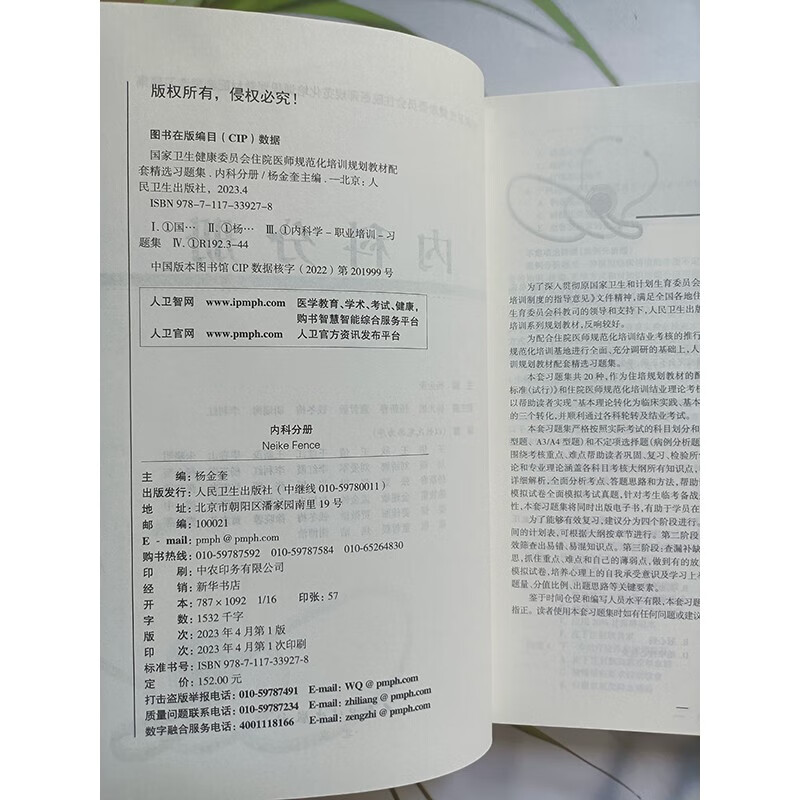 版权所有，侵权必究！
图书在版编目（CIP）数据
国家卫生健康委员会住院医师规范化培训规划教材配
套精选习题集．内科分册 / 杨金奎主编．—北京：人
民卫生出版社，2023.4
ISBN 978-7-117-33927-8
Ⅰ.①国… Ⅱ.①杨… Ⅲ.①内科学－职业培训－习
题集 Ⅳ.①R192.3-44
中国版本图书馆 CIP 数据核字（2022）第 201999 号
人卫智网 www.ipmph.com 医学教育、学术、考试、健康，
购书智慧智能综合服务平台
人卫官网 www.pmph.com 人卫官方资讯发布平台
内科分册
Neike Fence
主 编：杨金奎
出版发行：人民卫生出版社（中继线 010-59780011）
地 址：北京市朝阳区潘家园南里 19 号
邮 编：100021
E - mail：pmph @ pmph.com
购书热线：010-59787592 010-59787584 010-65264830
印 刷：中农印务有限公司
经 销：新华书店
开 本：787 × 1092 1/16 印张：57
字 数：1532 千字
版 次：2023 年 4 月第 1 版
印 次：2023 年 4 月第 1 次印刷
标准书号：ISBN 978-7-117-33927-8
定 价：152.00 元
打击盗版举报电话：010-59787491 E-mail：WQ @ pmph.com
质量问题联系电话：010-59787234 E-mail：zhiliang @ pmph.com
数字融合服务电话：4001118166 E-mail：zengzhi @ pmph.com
为了深入贯彻原国家卫生和计划生育委员会
培训制度的指导意见》文件精神，满足全国各地住
生育委员会科教司的领导和支持下，人民卫生出版
培训系列规划教材，反响较好。
为配合住院医师规范化培训结业考核的推行
规范化培训基地进行全面、充分调研的基础上，人
训规划教材配套精选习题集。
本套习题集共 20 种，作为住培规划教材的配
标准（试行）》和住院医师规范化培训结业理论考核
以帮助读者实现“基本理论转化为临床实践、基本
的三个转化，并顺利通过各科轮转及结业考试。
本套习题集严格按照实际考试的科目划分和
型题、A3/A4 型题）和不定项选择题（病例分析题
围绕考核重点、难点帮助读者巩固、复习、检验所
论和专业理论涵盖各科目考核大纲所有知识点，
详细解析，全面分析考点、答题思路和方法，帮助
模拟试卷全面模拟考试真题，针对考生临考备战
性，本套习题集将同时出版电子书，有助于学员在
为了能够有效复习，建议分为四个阶段进行。
间的计划表，可根据大纲按章节进行。第二阶段
效筛查出易错、易混知识点。第三阶段：查漏补缺
思，抓住重点、难点和自己的薄弱点，做到有的放
模拟试卷，培养心理上的自我承受意识及学习上
题量、分值比例、出题思路等关键要素。
鉴于时间仓促和编写人员水平有限，本套习题
指正。读者使用本套习题集时如有任何问题或建议